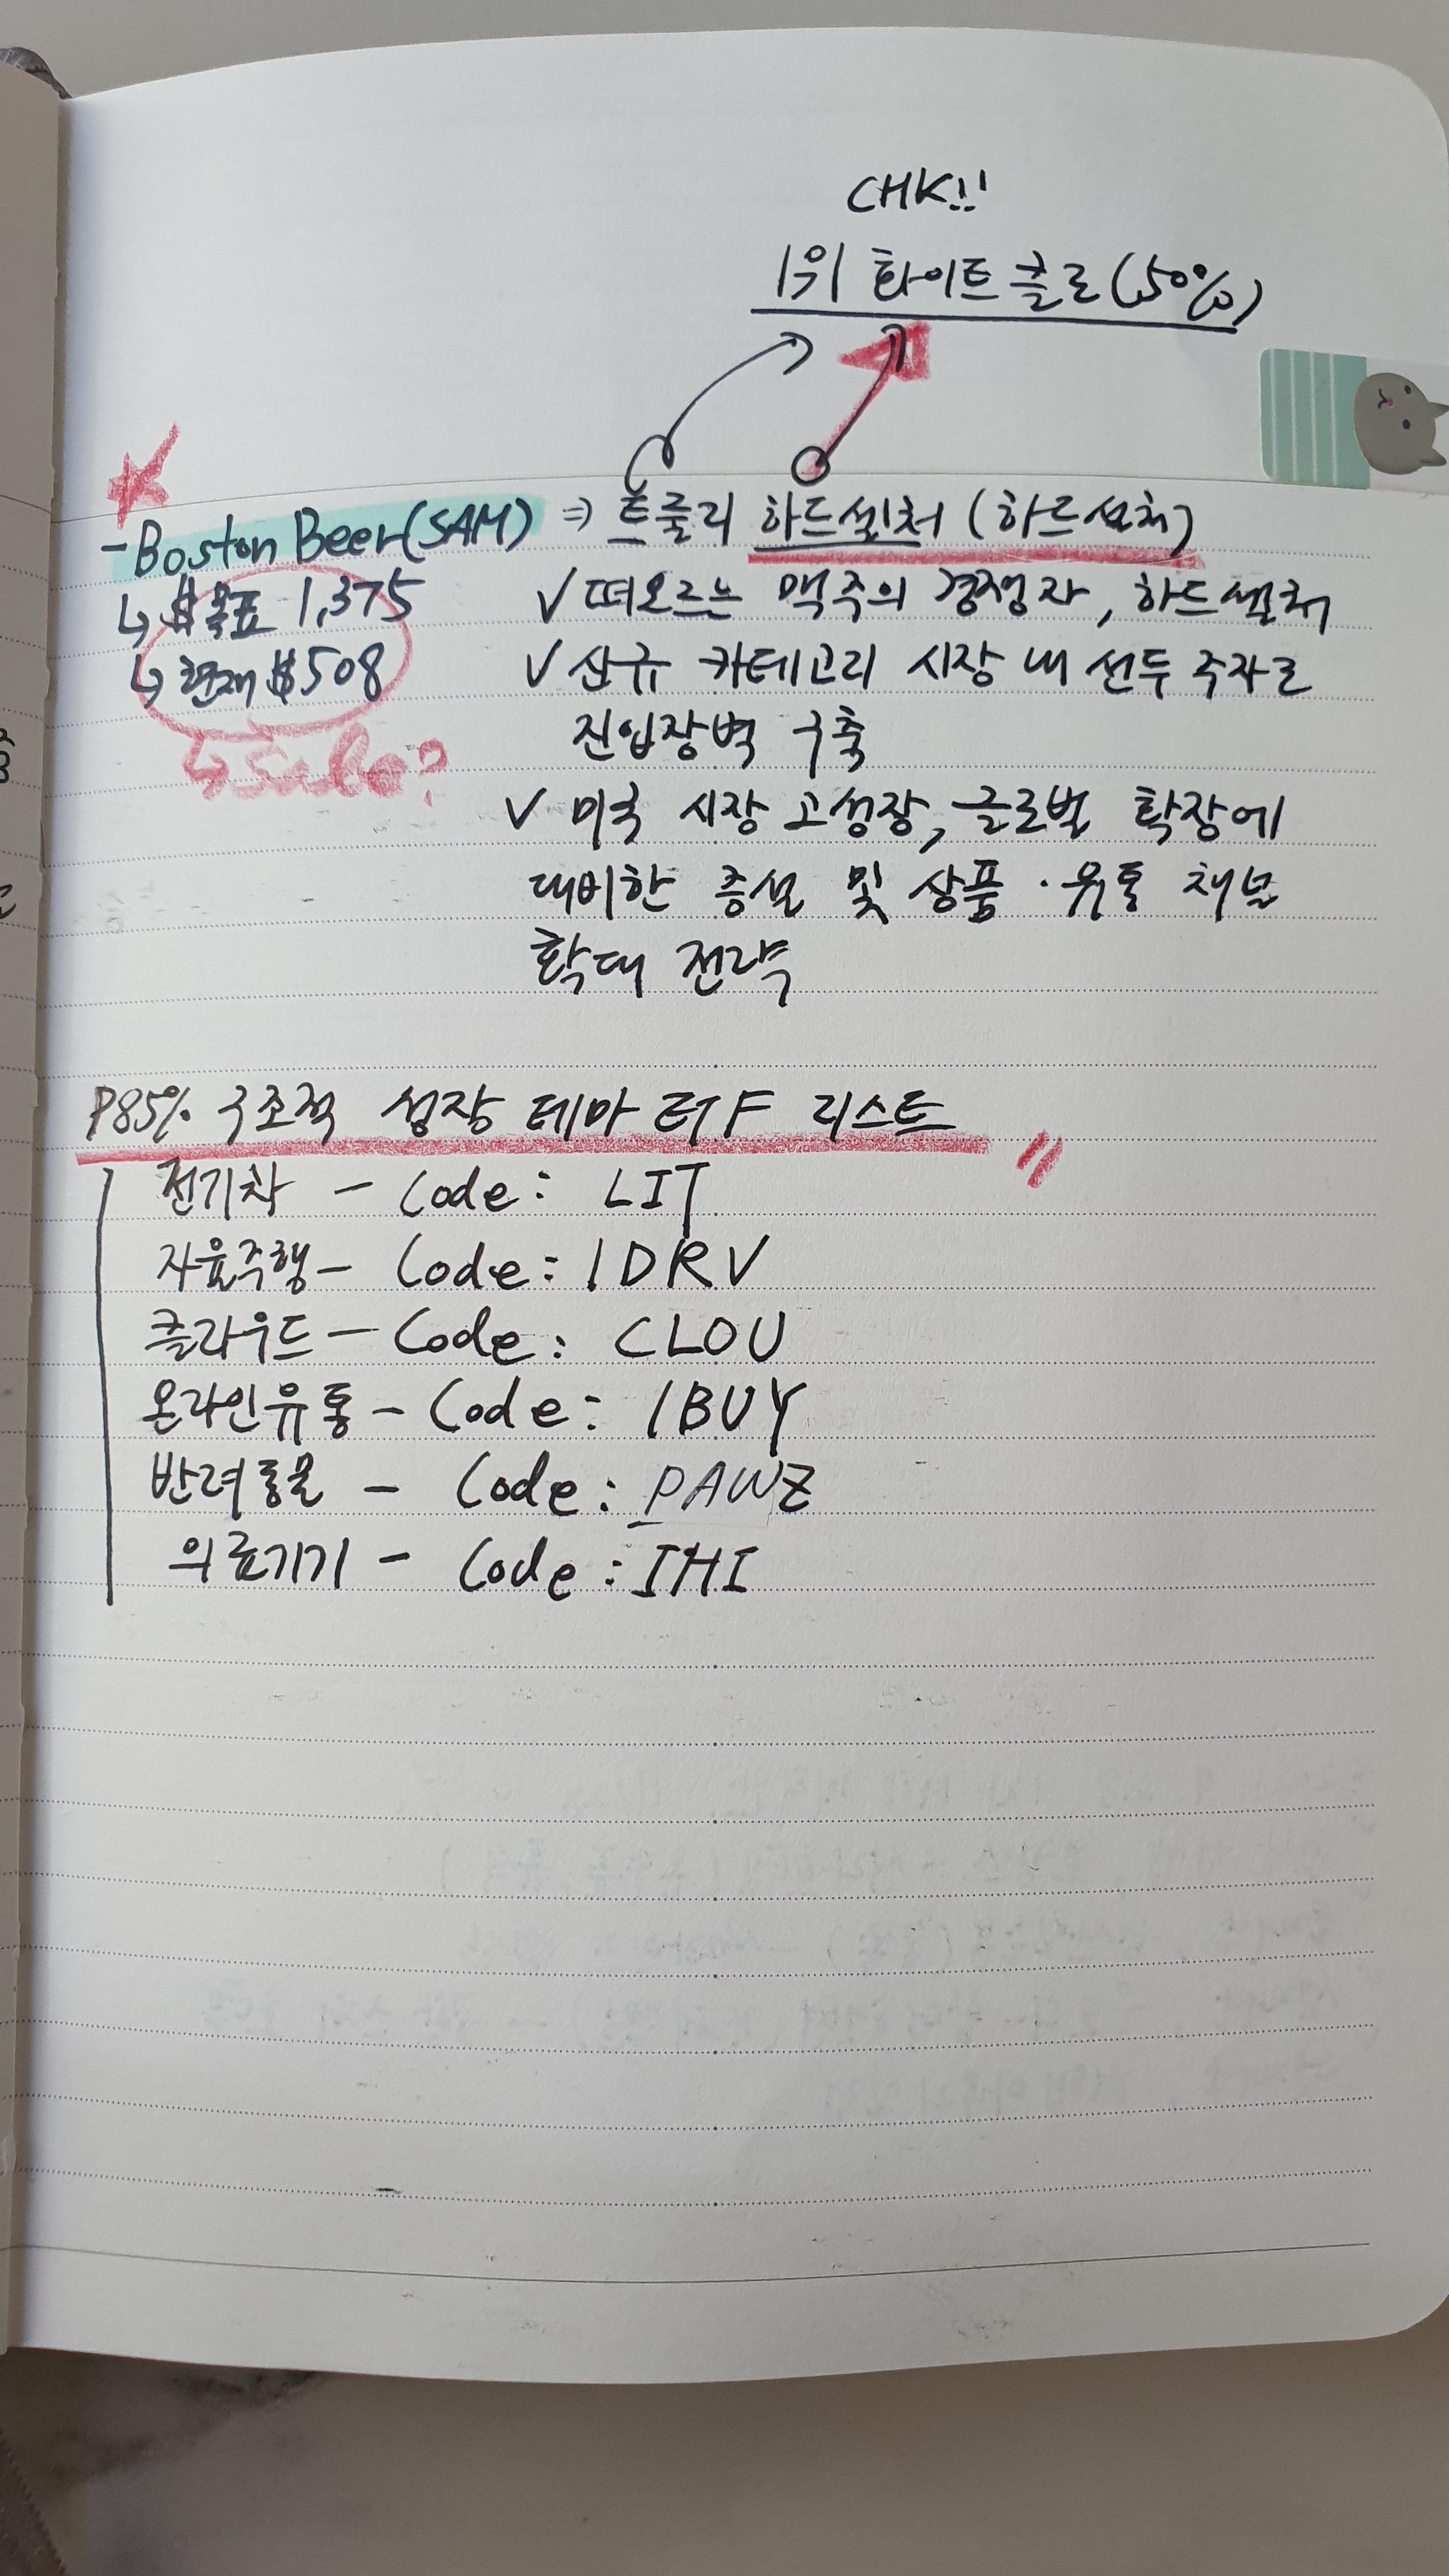 CHK!!
1위 화이트클로 (50%)
- Boston Beer(SAM) ⇒ 트룰리 하드셀처 (하드셀처)
↳ $목표 1,375
↳ 현재 $508
↳ Sale?
√ 떠오르는 맥주의 경쟁자, 하드셀처
√ 신규 카테고리 시장 내 선두 주자로
진입장벽 구축
√ 미국 시장 고성장, 글로벌 확장에
대비한 증설 및 상품·유통 채널
확대 전략
P85% 구조적 성장 테마 ETF 리스트 〃
전기차 - Code: LIT
자율주행 - Code: IDRV
클라우드 - Code: CLOU
온라인유통 - Code: IBUY
반려동물 - Code: PAWZ
의료기기 - Code: IHI